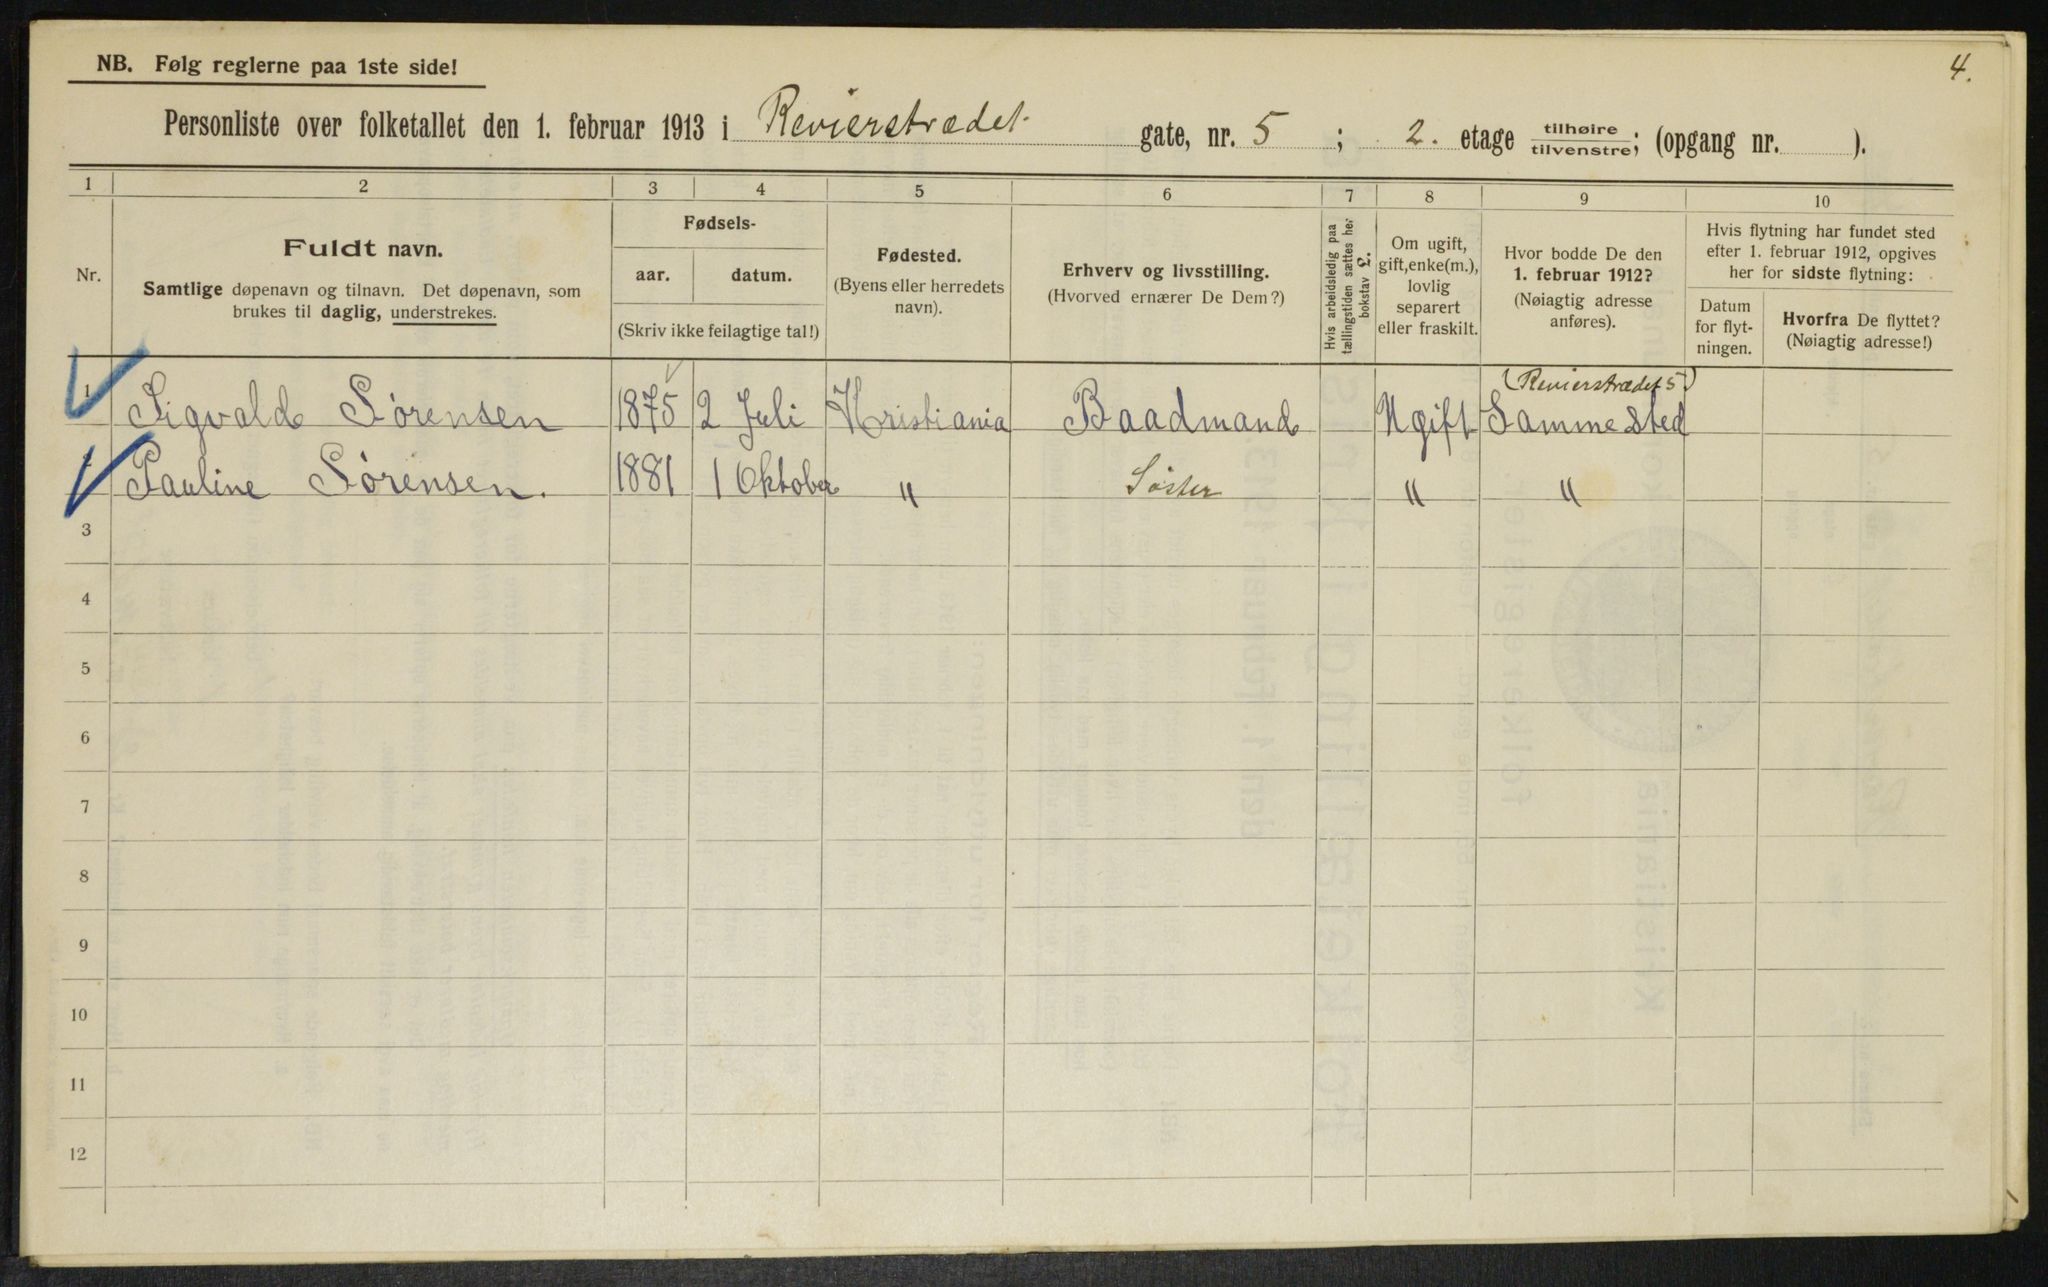 NB. Følg reglerne paa 1ste side!
4.
Personliste over folketallet den 1. februar 1913 i Revierstrædet gate, nr. 5 ; 2. etage tilhøire tilvenstre; (opgang nr. ).
1 2 3 4 5 6 7 8 9 10
Nr.
Fuldt navn.
Samtlige døpenavn og tilnavn. Det døpenavn, som
brukes til daglig, understrekes.
Fødsels-
aar. datum.
(Skriv ikke feilagtige tal!)
Fødested.
(Byens eller herredets
navn).
Erhverv og livsstilling.
(Hvorved ernærer De Dem?)
Hvis arbeidsledig paa
tællingstiden sættes her
bokstav L.
Om ugift,
gift, enke(m.),
lovlig
separert
eller fraskilt.
Hvor bodde De den
1. februar 1912?
(Nøiagtig adresse
anføres).
Hvis flytning har fundet sted
efter 1. februar 1912, opgives
her for sidste flytning:
Datum
for flyt-
ningen.
Hvorfra De flyttet?
(Nøiagtig adresse!)
(Revierstrædet 5)
1 Sigvald Sørensen 1875 2 Juli Kristiania Baadmand Ugift Samme Sted
2 Pauline Sørensen. 1881 1 Oktober " Søster " "
3
4
5
6
7
8
9
10
11
12